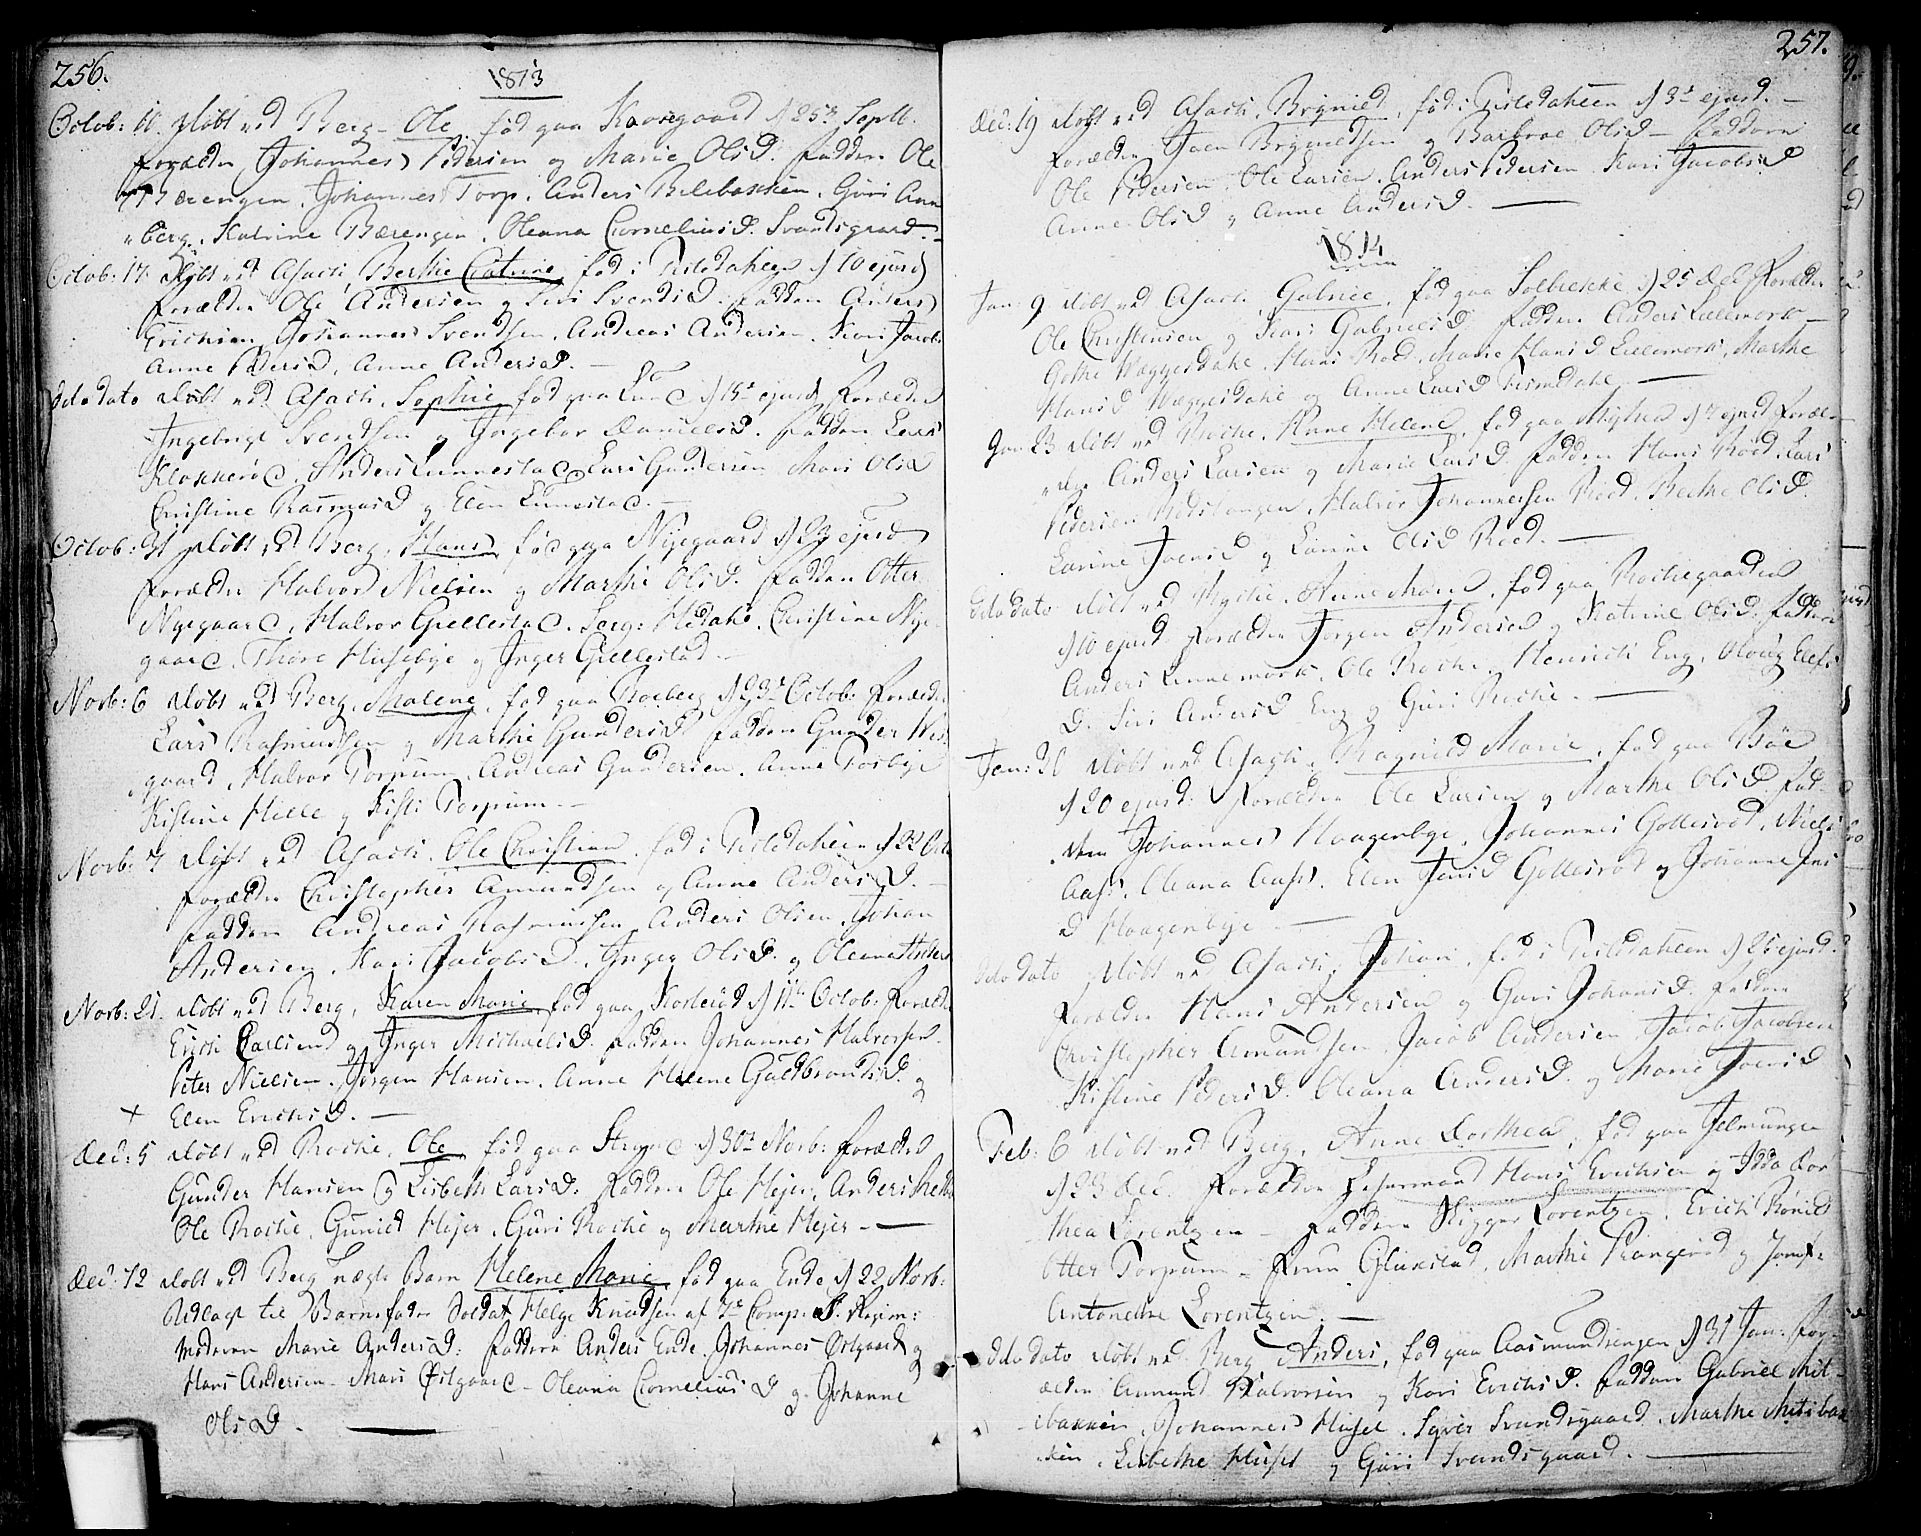 256.
1813
Octob: 10. Døbt ved Berg - Ole. fød paa Korsegaard d 25de Septb.
Forældre Johannes Pedersen og Marie OlsD. Faddere Ole
Bærengen. Johannes Torp. Anders Bilebakken. Guri Ann
berg. Katrine Bærengen. Oleana CorneliusD. Svandsgaard. -
Octob: 17. Døbt ved Asach, Berthe Catrine, fød i Tistedahlen d 10 ejusd
Forældre Ole Andersen og Siri SvendsD. Faddere Anders
Erichsen Johannes Svendsen, Andreas Andersen. Kari Jacobs
Anne PedersD, Anne AndersD. -
Dito dato Døbt ved Asach. Sophie fød paa Lund d 15de ejusd Forældre
Ingebrigt Svendsen og Ingebor DanielsD. Faddere Lars
Klokkerød. Anders Lunnestad Lars Gundersen Mari OlsD
Christine RasmusD og Elen Lunnestad. -
Octob: 31 Døbt ved Berg, Hans, fød paa Nyegaard d 23 ejusd
Forældre Halvor Nielsen og Marthe OlsD. Faddere Otter
Nyegaard, Halvor Gjellestad. Christine Nye-
gaard. Thore Husebye og Inger Gjellestad -
Novb: 6 Døbt ved Berg, Malene, fød paa Roeberg d 23de Octob: Foræld:
Lars Rasmussen og Marthe GundersD Faddere Gunder Wis
gaard, Halvor Torpum, Andreas Gundersen. Anne Torbye
Kistine Hille og Kisti Torpum. -
Novb: 7 Døbt ved Asach. Ole Christian, fød i Tistedahlen d 22 Octb
Forældre Christopher Amundsen og Anne AndersD. -
Faddere Andreas Rasmussen Anders Olsen. Johan
Andersen, Kari JacobsD. Inger OlsD. og Oleana Anders
Novb: 21. Døbt ved Berg, Karen Marie, fød paa Korterød d 11te Octob: Foræld
Erich Carlsen og Inger MichaelsD. Faddere Johannes Halvorsen.
Peter Nielsen. Jørgen Hansen. Anne Helene GuldbrandsD. og
+ Elen ErichsD. -
Dec: 5 Døbt ved Rochе. Ole, fød paa d 30te Novb: Forældre
Gunder Hansen og Lisbeth LarsD. Faddere Ole Hejer, Anders
Ole Roche, Gunild Hejer. Guri Roche og Marthe Hejer -
Dec: 12 Døbt ved Berg uægte Barn Helene Marie fød paa Ende d 22 Novb:
Udlagt til Barnefader Soldat Helge Knudsen af 7de Comp: Regim:
Moderen Marie AndersD: Faddere Anders Ende, Johannes Østgaard og
Hans Andersen - Mari Østgaard - Oleana CorneliusD og Johanne
OlsD -
257.
Dec: 19 Døbt ved Asach, Brynild, fød i Tistedahlen d 3de ejusd. -
Forældre Joen Brynildsen og Barbroe OlsD - Faddere
Ole Pedersen. Ole Larsen. Anders Pedersen. Kari JacobsD
Anne OlsD og Anne AndersD. -
1814
Jan: 9 Døbt ved Asach. Gabriel, fød paa Solbrekke d 25 Dec Forældre
Ole Christensen og Kari GabrielsD Faddere Anders Lillemork -
Gothe Waggesdahl. Hans Roed. Marie HansD Lillemork. Marthe
HansD Waggesdahl og Anne LarsD Tistedahl -
Jan: 23 Døbt ved Roche. Anne Helene, fød paa d 7 ejusd Foræl-
dre Anders Larsen og Marie LarsD. Faddere Hans Roed. Lars
Pedersen Rødstangen. Halvor Johannessen Roed. Berthe OlsD.
Larine JoensD og Larine OlsD Roed. -
Dito dato Døbt ved Roche, Anne Marie, fød paa Rochegaarden
d 10 ejusd Forældre Jørgen Andersen og Katrine OlsD. Faddere
Anders Lunnemork. Ole Roche. Henrich Eng. Olaug Elefs
D. Siri AndersD Eng og Guri Roche. -
Jan: 30 Døbt ved Asach, Ragnild Marie, fød paa Bøe
d 20 ejusd: Forældre Ole Larsen og Marthe OlsD. Fad-
dere Johannes Haagenbye. Johannes Gollesrød, Niels
Aass. Oleana Aass. Elen JensD Gollesrød og Johanne Jens
D Haagenbye. -
Dito dato Døbt ved Asach, Johan, fød i Tistedahlen d 26 ejusd.
Forældre Hans Andersen og Guri JohansD. Faddere
Christopher Amundsen Jacob Andersen, Jacob Jacobsen
Kistine PedersD. Oleana AndersD. og Marie JoensD
Feb: 6 Døbt ved Berg, Anne Dorthea, fød paa Jelmungen
d 23 Dec. Forældre Hans Erichsen og Idda Dor
thea Lorentzen - Faddere Lorentzen. Erich Rønild
Otter Torpum - Frue Glukstad, Marthe Rangerød og Jomf:
Antonethe Lorentzen. -
Dito dato Døbt ved Berg Anders, fød paa Aasmundrengen d 31 Jan: For-
ældre Amund Halvorsen og Kari ErichsD. Faddere Gabriel Mit-
ibakken, Johannes Huset. Syver Svandsgaard. Marthe Mitibak
ken. Lisbethe Huset og Guri Svandsgaard. -